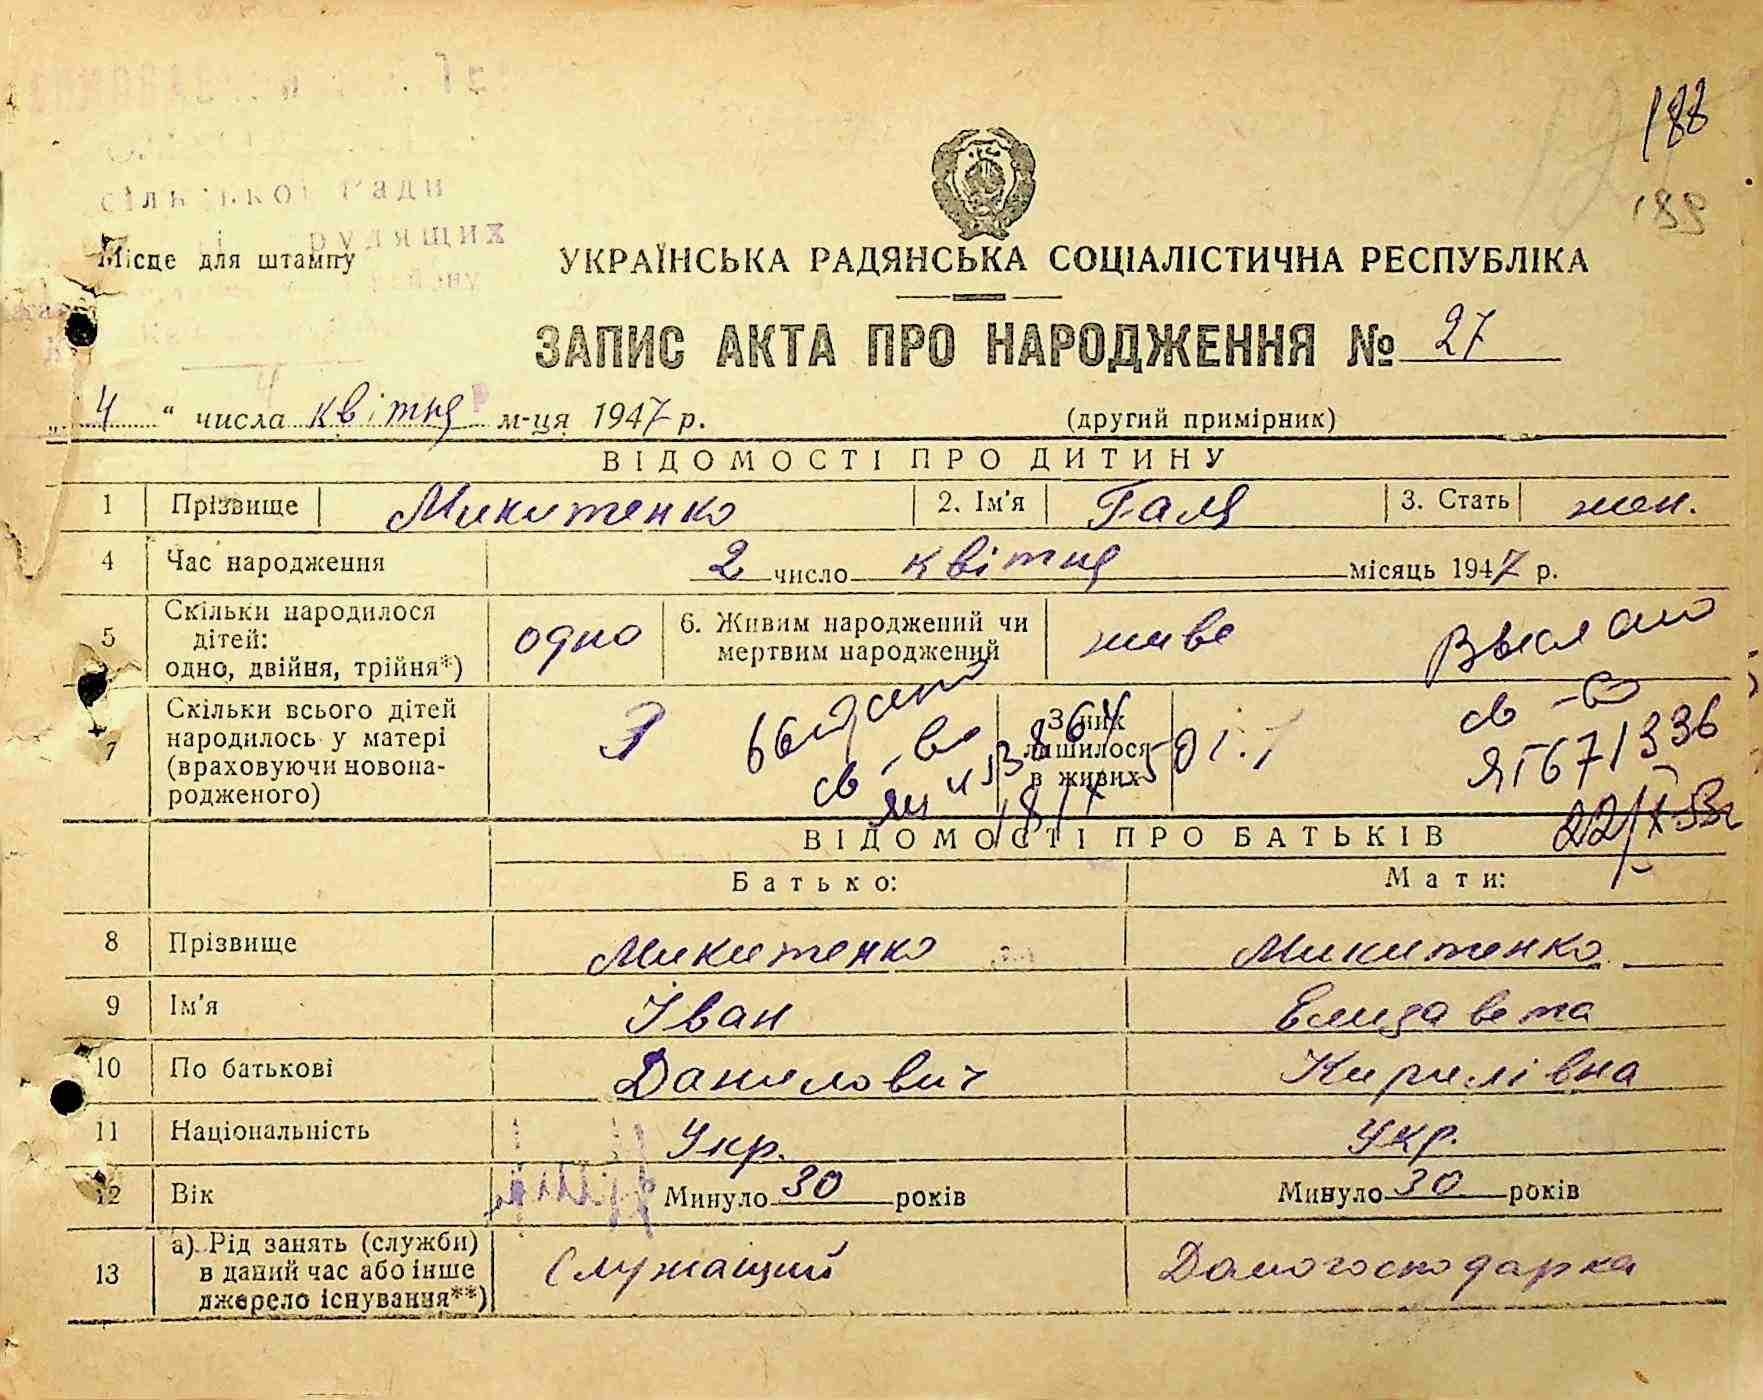 188
189
сільської Ради
трудящих
Місце для штампу
УКРАЇНСЬКА РАДЯНСЬКА СОЦІАЛІСТИЧНА РЕСПУБЛІКА
ЗАПИС АКТА ПРО НАРОДЖЕННЯ № 27
„ 4 “ числа квітня м-ця 1947 р. (другий примірник)
ВІДОМОСТІ ПРО ДИТИНУ
1 Прізвище Микитенко 2. Ім'я Галя 3. Стать жен.
4 Час народження 2 число квітня місяць 1947 р.
5 Скільки народилося дітей: одно, двійня, трійня*) одно 6. Живим народжений чи мертвим народжений живе
Выслано
св-во
ЯГ671336
22/X-53г
7 Скільки всього дітей народилось у матері (враховуючи новонародженого) 3 З них лишилося в живих
св-во
ВІДОМОСТІ ПРО БАТЬКІВ
Батько: Мати:
8 Прізвище Микитенко Микитенко
9 Ім'я Іван Елизавета
10 По батькові Данилович Кирилівна
11 Національність Укр. Укр.
12 Вік Минуло 30 років Минуло 30 років
13 а) Рід занять (служби) в даний час або інше джерело існування**) Служащий Домогосподарка